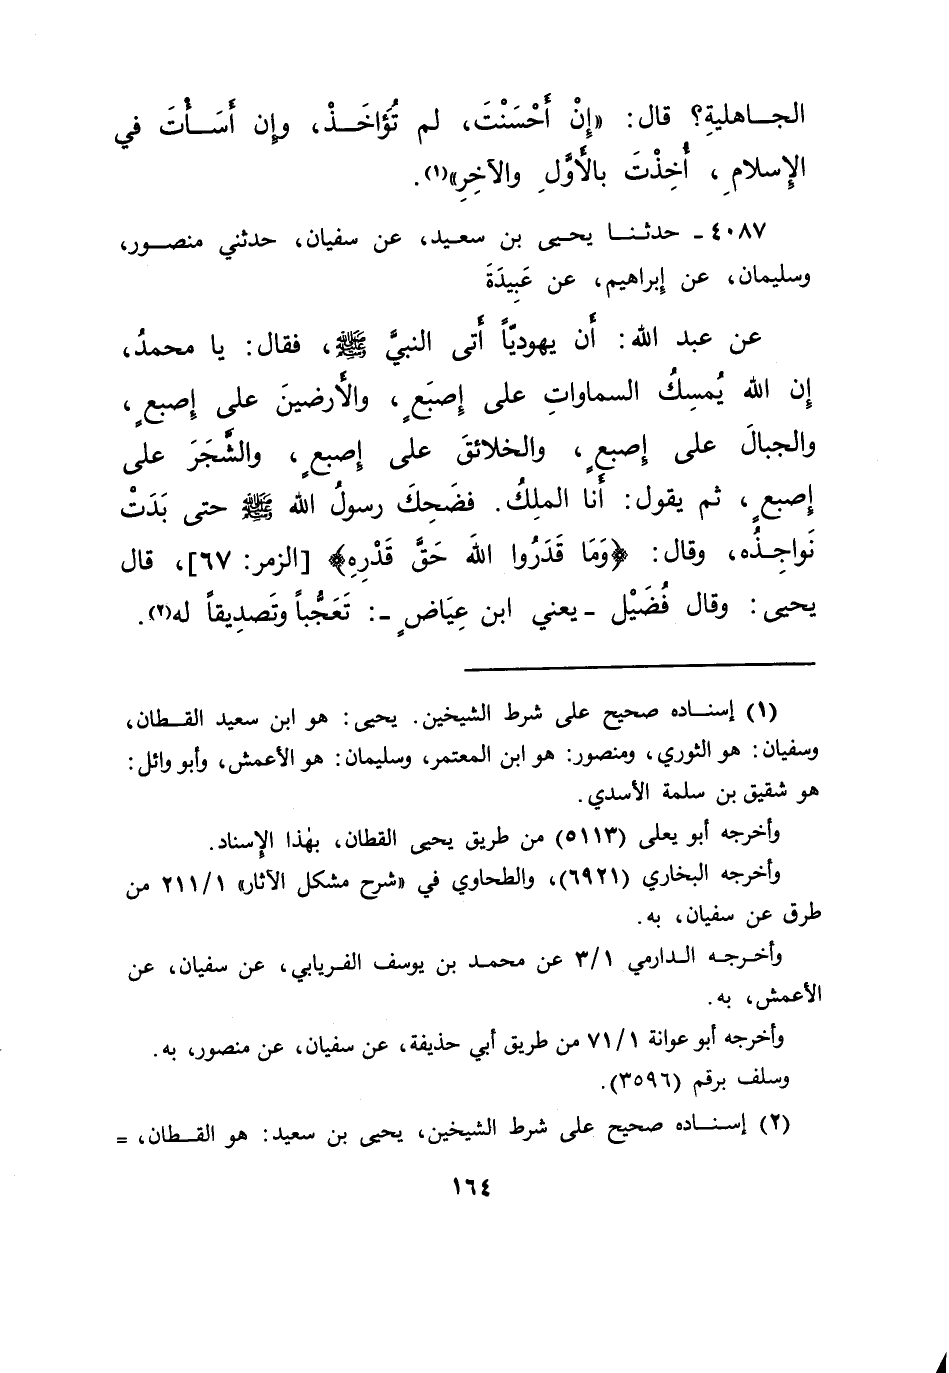 الجاهليةِ؟ قال: «إِنْ أَحْسَنْتَ، لم تُؤَاخَذْ، وإِن أَسَأْتَ في
الإِسلامِ، أُخِذْتَ بالأَوَّلِ والآخِرِ»(١).
٤٠٨٧ ـ حدثنا يحيى بن سعيد، عن سفيان، حدثني منصور،
وسليمان، عن إِبراهيم، عن عَبِيدَةَ
عن عبد الله: أَن يهوديّاً أَتى النبيَّ ﷺ، فقال: يا محمدُ،
إِن الله يُمسِكُ السماواتِ على إِصبَعٍ، والأَرضينَ على إِصبعٍ،
والجبالَ على إِصبعٍ، والخلائقَ على إِصبعٍ، والشَّجَرَ على
إِصبعٍ، ثم يقول: أَنا الملِكُ. فضَحِكَ رسولُ الله ﷺ حتى بَدَتْ
نَواجِذُه، وقال: ﴿وَمَا قَدَرُوا اللهَ حَقَّ قَدْرِهِ﴾ [الزمر: ٦٧]، قال
يحيى: وقال فُضَيْل ـ يعني ابن عِيَاضٍ ـ: تَعَجُّباً وتَصدِيقاً له(٢).
(١) إسناده صحيح على شرط الشيخين. يحيى: هو ابن سعيد القطان،
وسفيان: هو الثوري، ومنصور: هو ابن المعتمر، وسليمان: هو الأعمش، وأبو وائل:
هو شقيق بن سلمة الأسدي.
وأخرجه أبو يعلى (٥١١٣) من طريق يحيى القطان، بهٰذا الإِسناد.
وأخرجه البخاري (٦٩٢١)، والطحاوي في «شرح مشكل الآثار» ٢١١/١ من
طرق عن سفيان، به.
وأخرجه الدارمي ٣/١ عن محمد بن يوسف الفريابي، عن سفيان، عن
الأعمش، به.
وأخرجه أبو عوانة ٧١/١ من طريق أبي حذيفة، عن سفيان، عن منصور، به.
وسلف برقم (٣٥٩٦).
(٢) إسناده صحيح على شرط الشيخين، يحيى بن سعيد: هو القطان، =
١٦٤